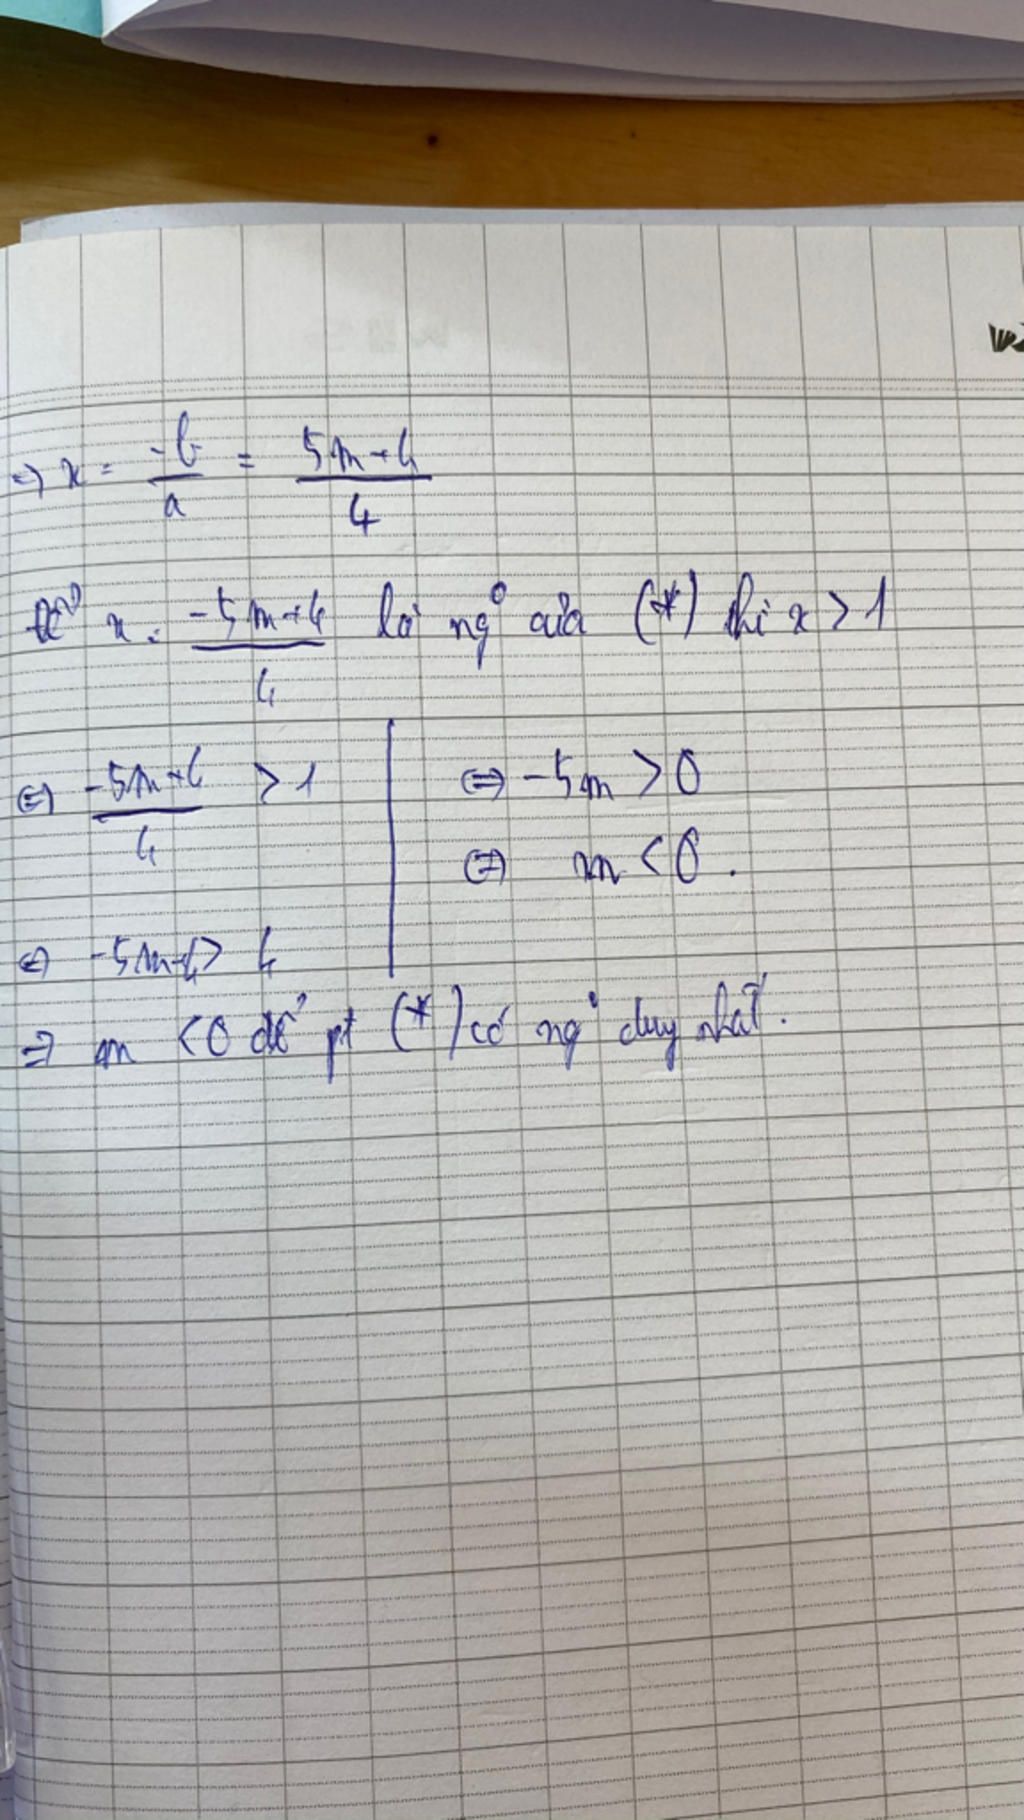 => x = -b/a = 5m+4/4
để x = -5m+4/4 là ng° của (*) thì x > 1
<=> -5m+4/4 > 1
<=> -5m+4 > 4
<=> -5m > 0
<=> m < 0.
=> m < 0 để pt (*) có ng° duy nhất.